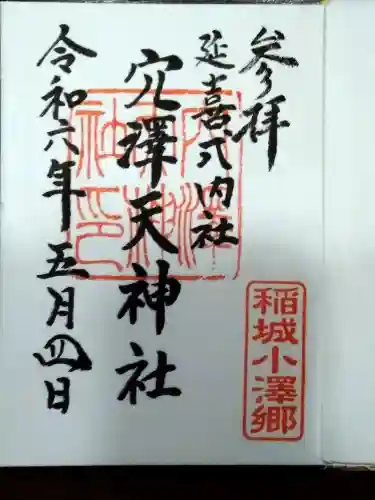 参拝
延喜式内社
穴澤天神社
令和六年五月四日
稲城小澤郷